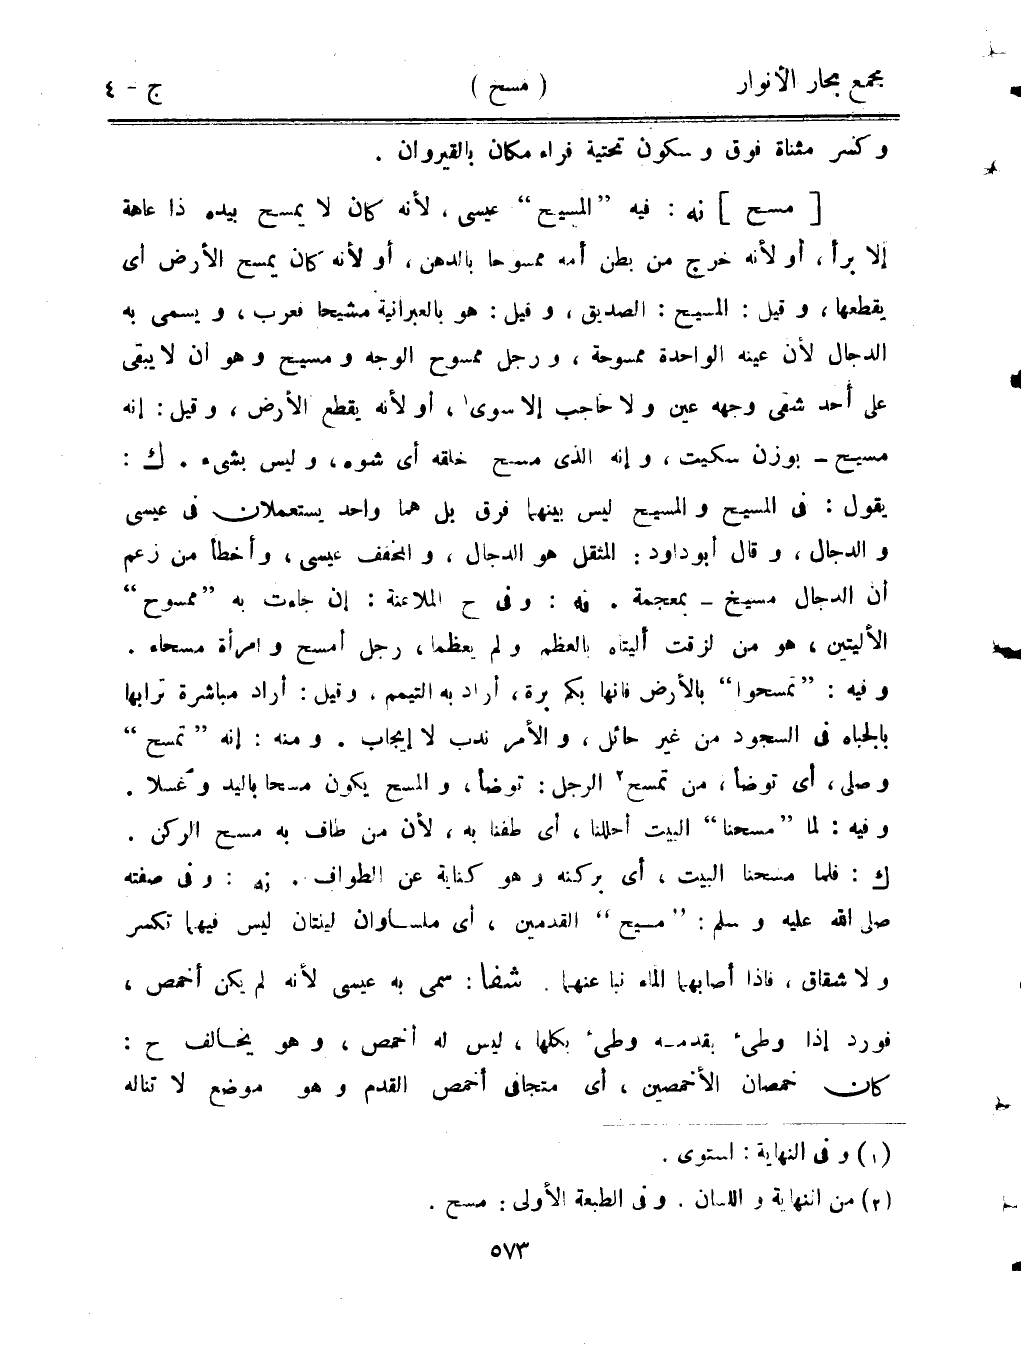 مجمع بحار الأنوار ( مسح ) ج - ٤
و كسر مثناة فوق و سكون تحتية فراء مكان بالقيروان .
[ مسح ] نه : فيه ”المسيح“ عيسى ، لأنه كان لا يمسح بيده ذا عاهة
إلا برأ ، أو لأنه خرج من بطن أمه ممسوحا بالدهن ، أو لأنه كان يمسح الأرض أى
يقطعها ، و قيل : المسيح : الصديق ، و قيل : هو بالعبرانية مشيحا فعرب ، و يسمى به
الدجال لأن عينه الواحدة ممسوحة ، و رجل ممسوح الوجه و مسيح و هو أن لا يبقى
على أحد شقى وجهه عين و لا حاجب إلا سوى١ ، أو لأنه يقطع الأرض ، و قيل : إنه
مسيح ــ بوزن سكيت ، و إنه الذى مسح خلقه أى شوه ، و ليس بشىء . ك :
يقول : فى المسيح و المسيح ليس بينهما فرق بل هما واحد يستعملان فى عيسى
و الدجال ، و قال أبو داود : المثقل هو الدجال ، و المخفف عيسى ، و أخطأ من زعم
أن الدجال مسيخ ــ بمعجمة . نه : و فى ح الملاعنة : إن جاءت به ”ممسوح“
الأليتين ، هو من لزقت أليتاه بالعظم و لم يعظما ، رجل أمسح و امرأة مسحاء .
و فيه : ”تمسحوا“ بالأرض فانها بكم برة ، أراد به التيمم ، و قيل : أراد مباشرة ترابها
بالجباه فى السجود من غير حائل ، و الأمر ندب لا إيجاب . و منه : إنه ”تمسح“
و صلى ، أى توضأ ، من تمسح٢ الرجل : توضأ ، و المسح يكون مسحا باليد و غسلا .
و فيه : لما ”مسحنا“ البيت أحللنا ، أى طفنا به ، لأن من طاف به مسح الركن .
ك : فلما مسحنا البيت ، أى بركنه و هو كناية عن الطواف . نه : و فى صفته
صلى الله عليه و سلم : ”مسيح“ القدمين ، أى ملساوان لينتان ليس فيهما تكسر
و لا شقاق ، فاذا أصابهما الماء نبا عنهما . شفا : سمى به عيسى لأنه لم يكن أخمص ،
فورد إذا وطىء بقدمه وطىء بكلها ، ليس له أخمص ، و هو يخالف ح :
كان خمصان الأخمصين ، أى متجافى أخمص القدم و هو موضع لا تناله
(١) و فى النهاية : استوى .
(٢) من النهاية و اللسان . و فى الطبعة الأولى : مسح .
٥٧٣